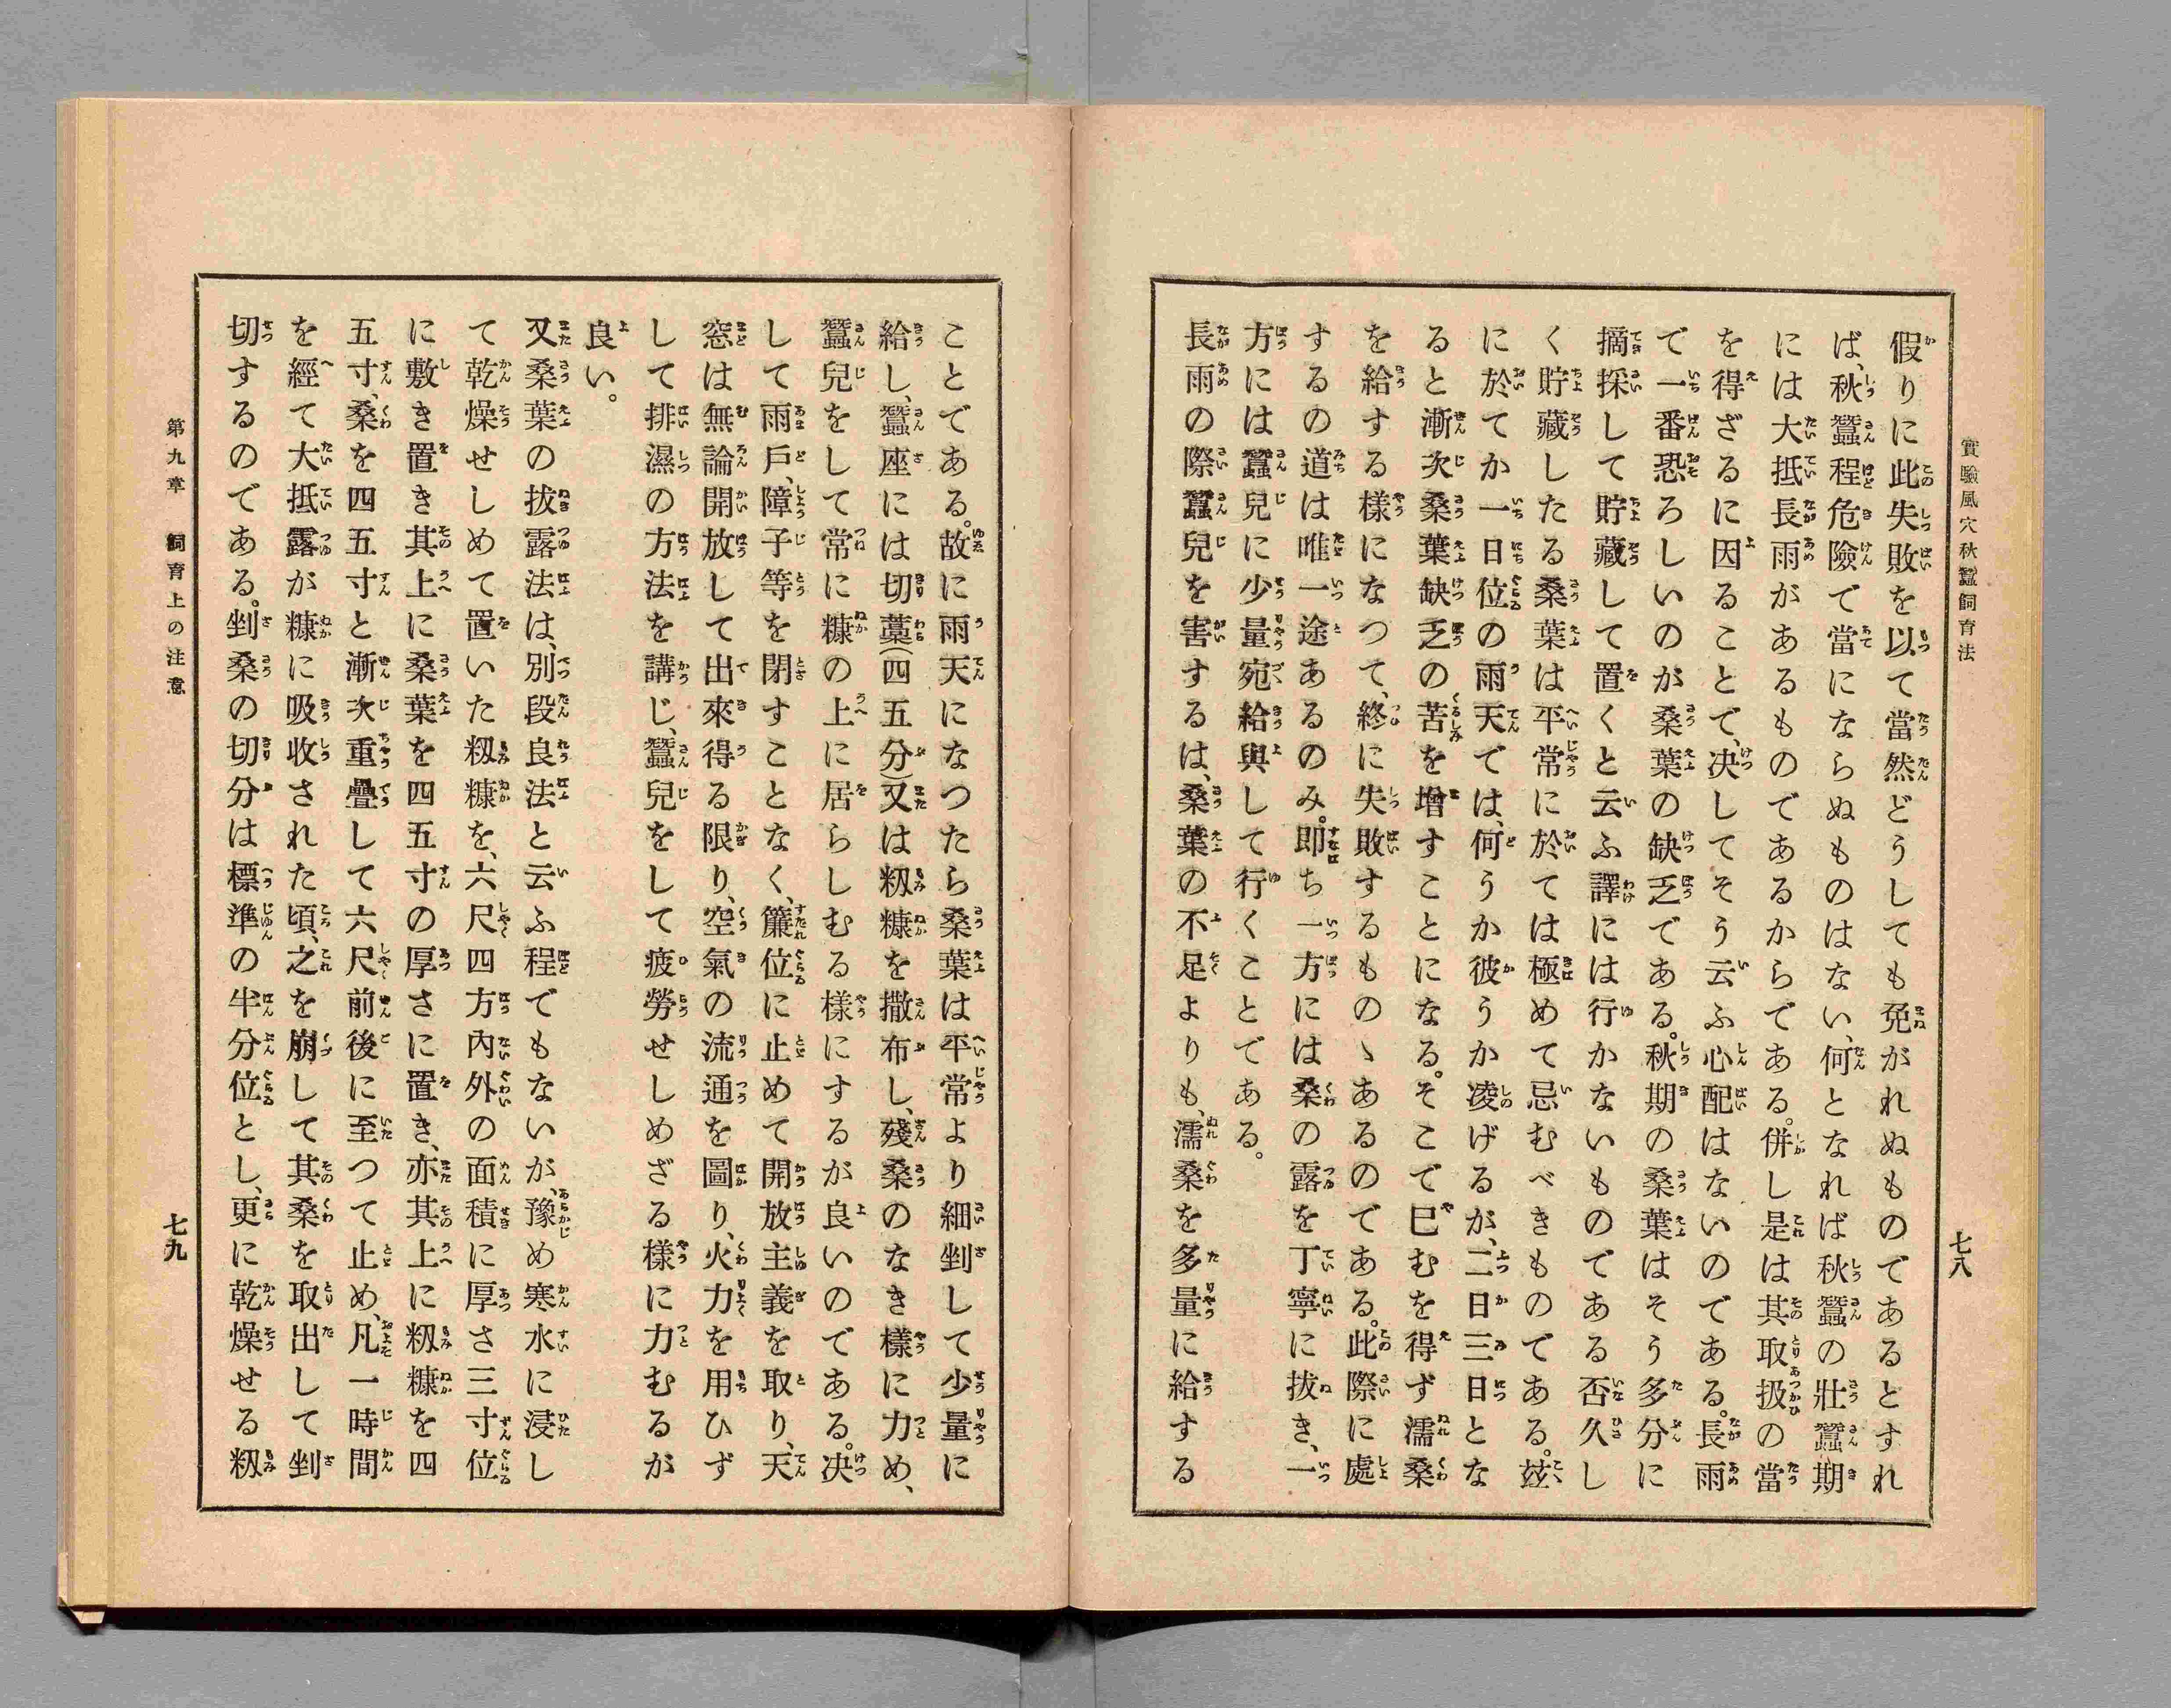 實驗風穴秋蠶飼育法
七八
假りに此失敗を以て當然どうしても免がれぬものであるとすれ
ば、秋蠶程危險で當にならぬものはない、何となれば秋蠶の壯蠶期
には大抵長雨があるものであるからである。併し是は其取扱の當
を得ざるに因ることで、决してそう云ふ心配はないのである。長雨
で一番恐ろしいのが桑葉の缺乏である。秋期の桑葉はそう多分に
摘採して貯藏して置くと云ふ譯には行かないものである否久し
く貯藏したる桑葉は平常に於ては極めて忌むべきものである。玆
に於てか一日位の雨天では、何うか彼うか凌げるが、二日三日とな
ると漸次桑葉缺乏の苦を增すことになる。そこで已むを得ず濡桑
を給する樣になつて、終に失敗するものヽあるのである。此際に處
するの道は唯一途あるのみ。即ち一方には桑の露を丁寧に拔き、一
方には蠶兒に少量宛給與して行くことである。
長雨の際蠶兒を害するは、桑葉の不足よりも、濡桑を多量に給する
ことである。故に雨天になつたら桑葉は平常より細剉して少量に
給し、蠶座には切藁(四五分)又は籾糠を撒布し、殘桑のなき樣に力め、
蠶兒をして常に糠の上に居らしむる樣にするが良いのである。决
して雨戶、障子等を閉すことなく、簾位に止めて開放主義を取り、天
窓は無論開放して出來得る限り、空氣の流通を圖り、火力を用ひず
して排濕の方法を講じ、蠶兒をして疲勞せしめざる樣に力むるが
良い。
又桑葉の拔露法は、別段良法と云ふ程でもないが、豫め寒水に浸し
て乾燥せしめて置いた籾糠を、六尺四方內外の面積に厚さ三寸位
に敷き置き其上に桑葉を四五寸の厚さに置き、亦其上に籾糠を四
五寸、桑を四五寸と漸次重疊して六尺前後に至つて止め、凡一時間
を經て大抵露が糠に吸收された頃、之を崩して其桑を取出して剉
切するのである。剉桑の切分は標準の半分位とし、更に乾燥せる籾
第九章　飼育上の注意
七九